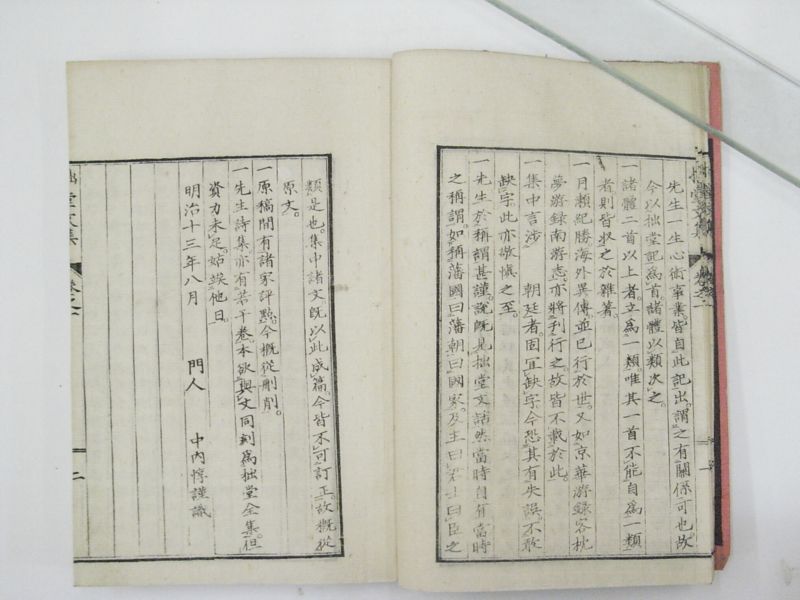 先生一生心術事業皆自此記出。謂之有關係可也故
今以拙堂記爲首。諸體以類次之。
一諸體二首以上者。立爲一類。唯其一首不能自爲一類
者則皆收之於雜著。
一月瀨紀勝海外異傳並已行於世。又如京華游錄客枕
夢游錄南游志。亦將刊行之。故皆不載於此。
一集中言涉　朝廷者固宜缺字今恐其有失誤。不敢
缺字此亦敬愼之至。
一先生於稱謂甚謹。說既見拙堂文話然當時自有當時
之稱謂。如稱藩國曰藩朝曰國家。及主曰君士曰臣之
類是也。集中諸文既以此成篇。今皆不可訂正故概從
原文。
一原稿間有諸家評點。今概從刪削。
一先生詩集亦有若干卷。本欲與文同刻爲拙堂全集。但
資力未足。姑竢他日。
明治十三年八月　門人　中內惇謹識
堂文集
二